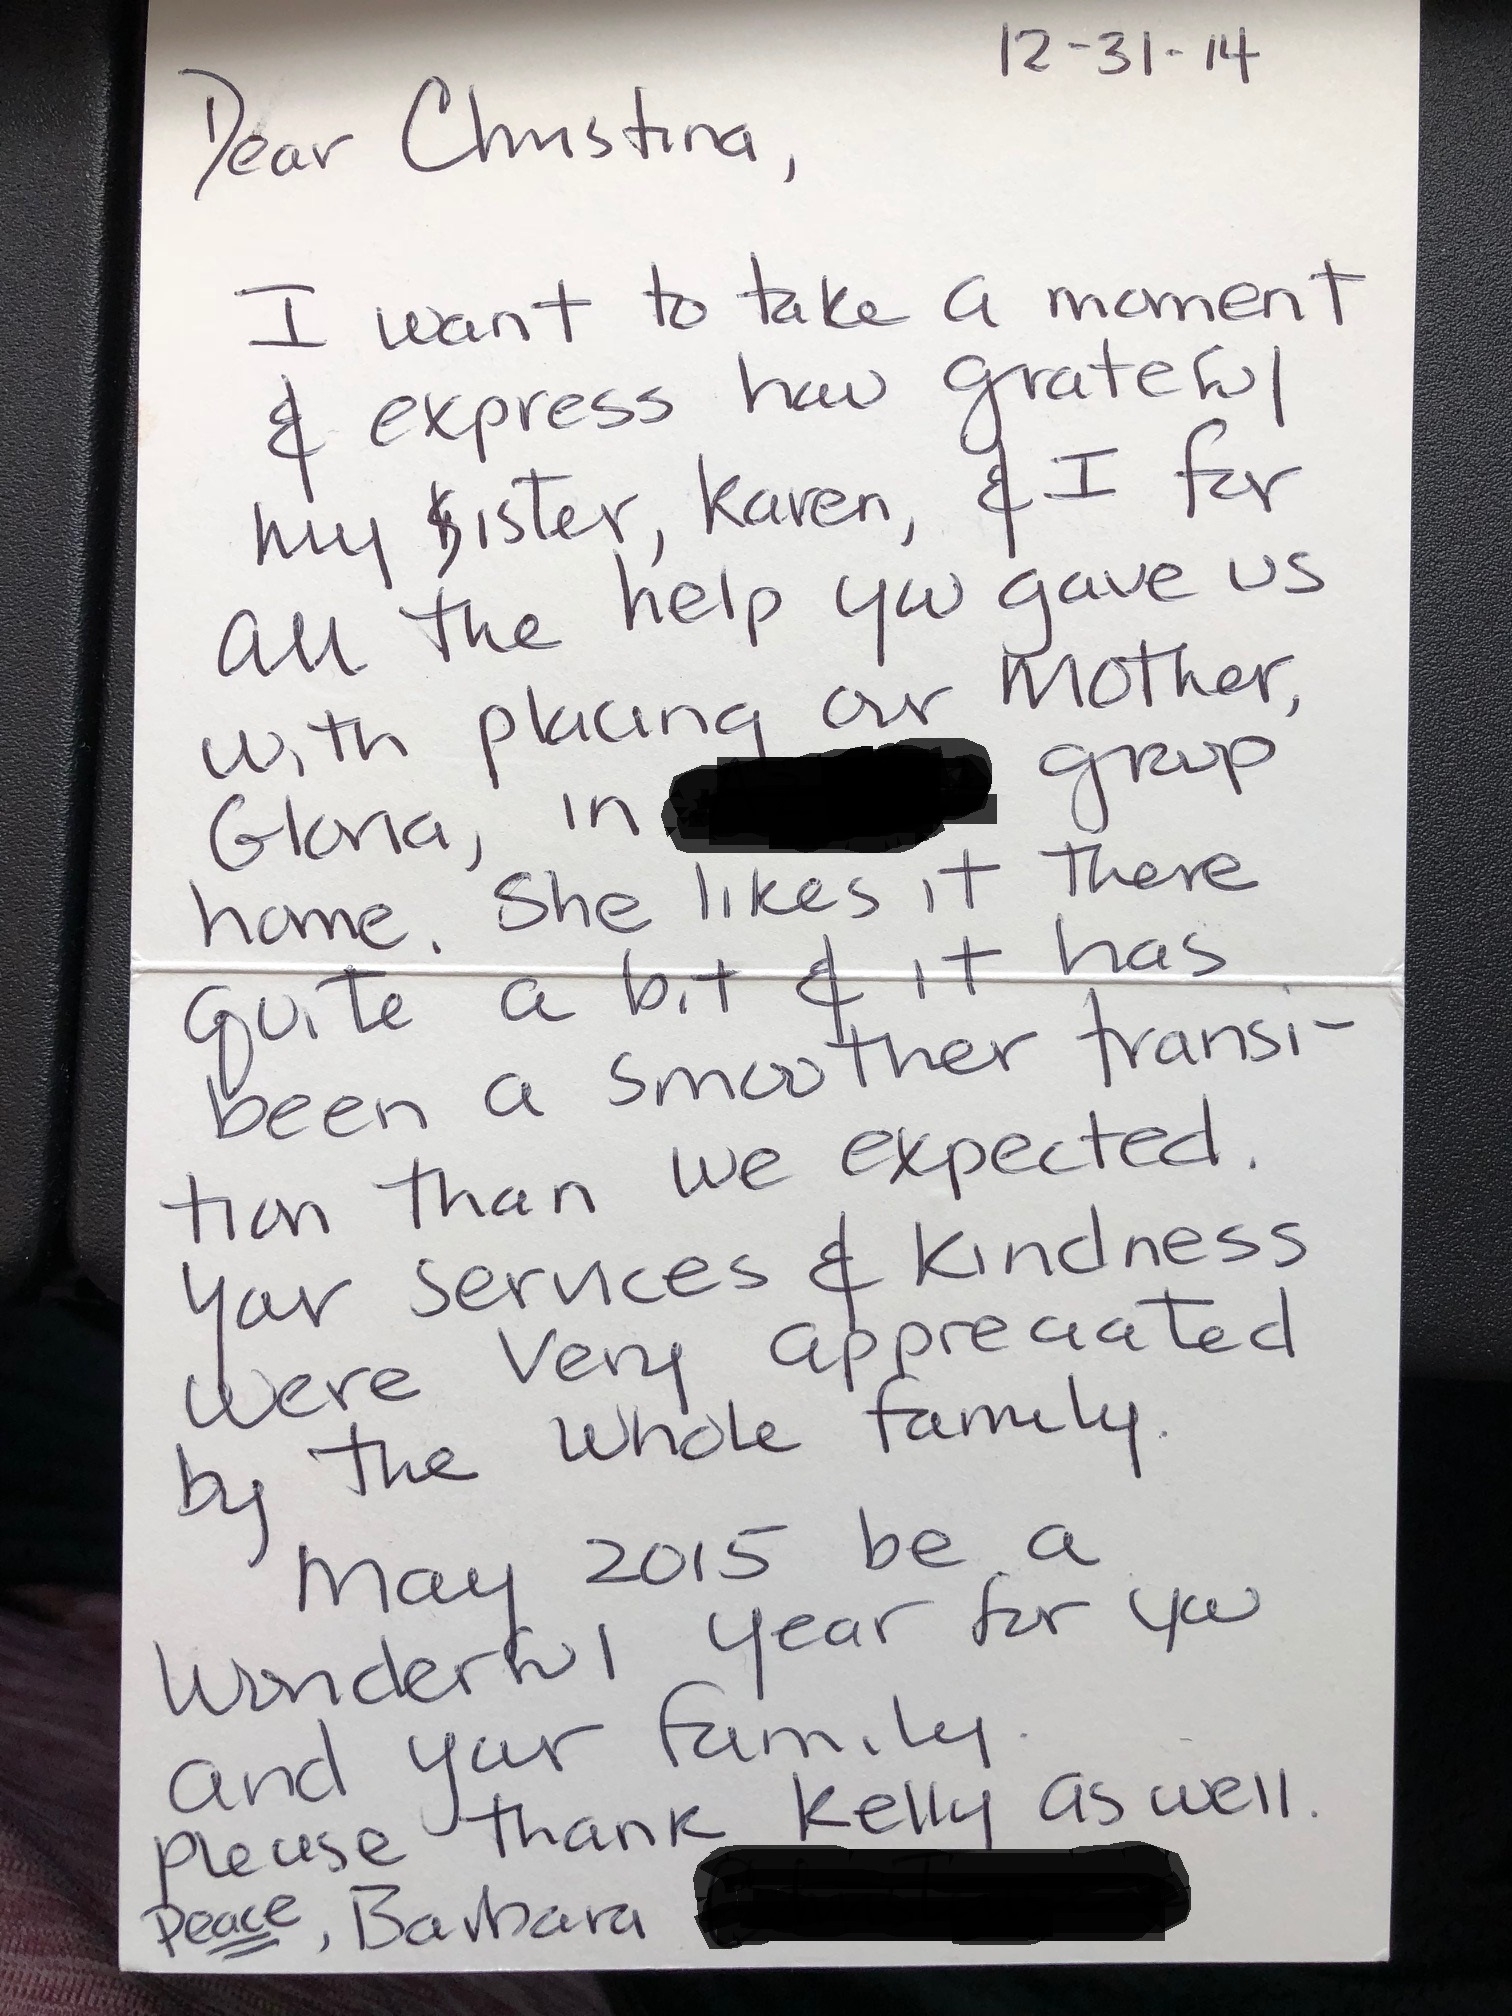 12-31-14
Dear Christina,
I want to take a moment
& express how grateful
my sister, Karen, & I for
all the help you gave us
with placing our Mother,
Gloria, in group
home. She likes it there
quite a bit & it has
been a smoother transi-
tion than we expected.
Your services & kindness
were very appreciated
by the whole family.
May 2015 be a
wonderful year for you
and your family.
please thank Kelly as well.
Peace, Barbara